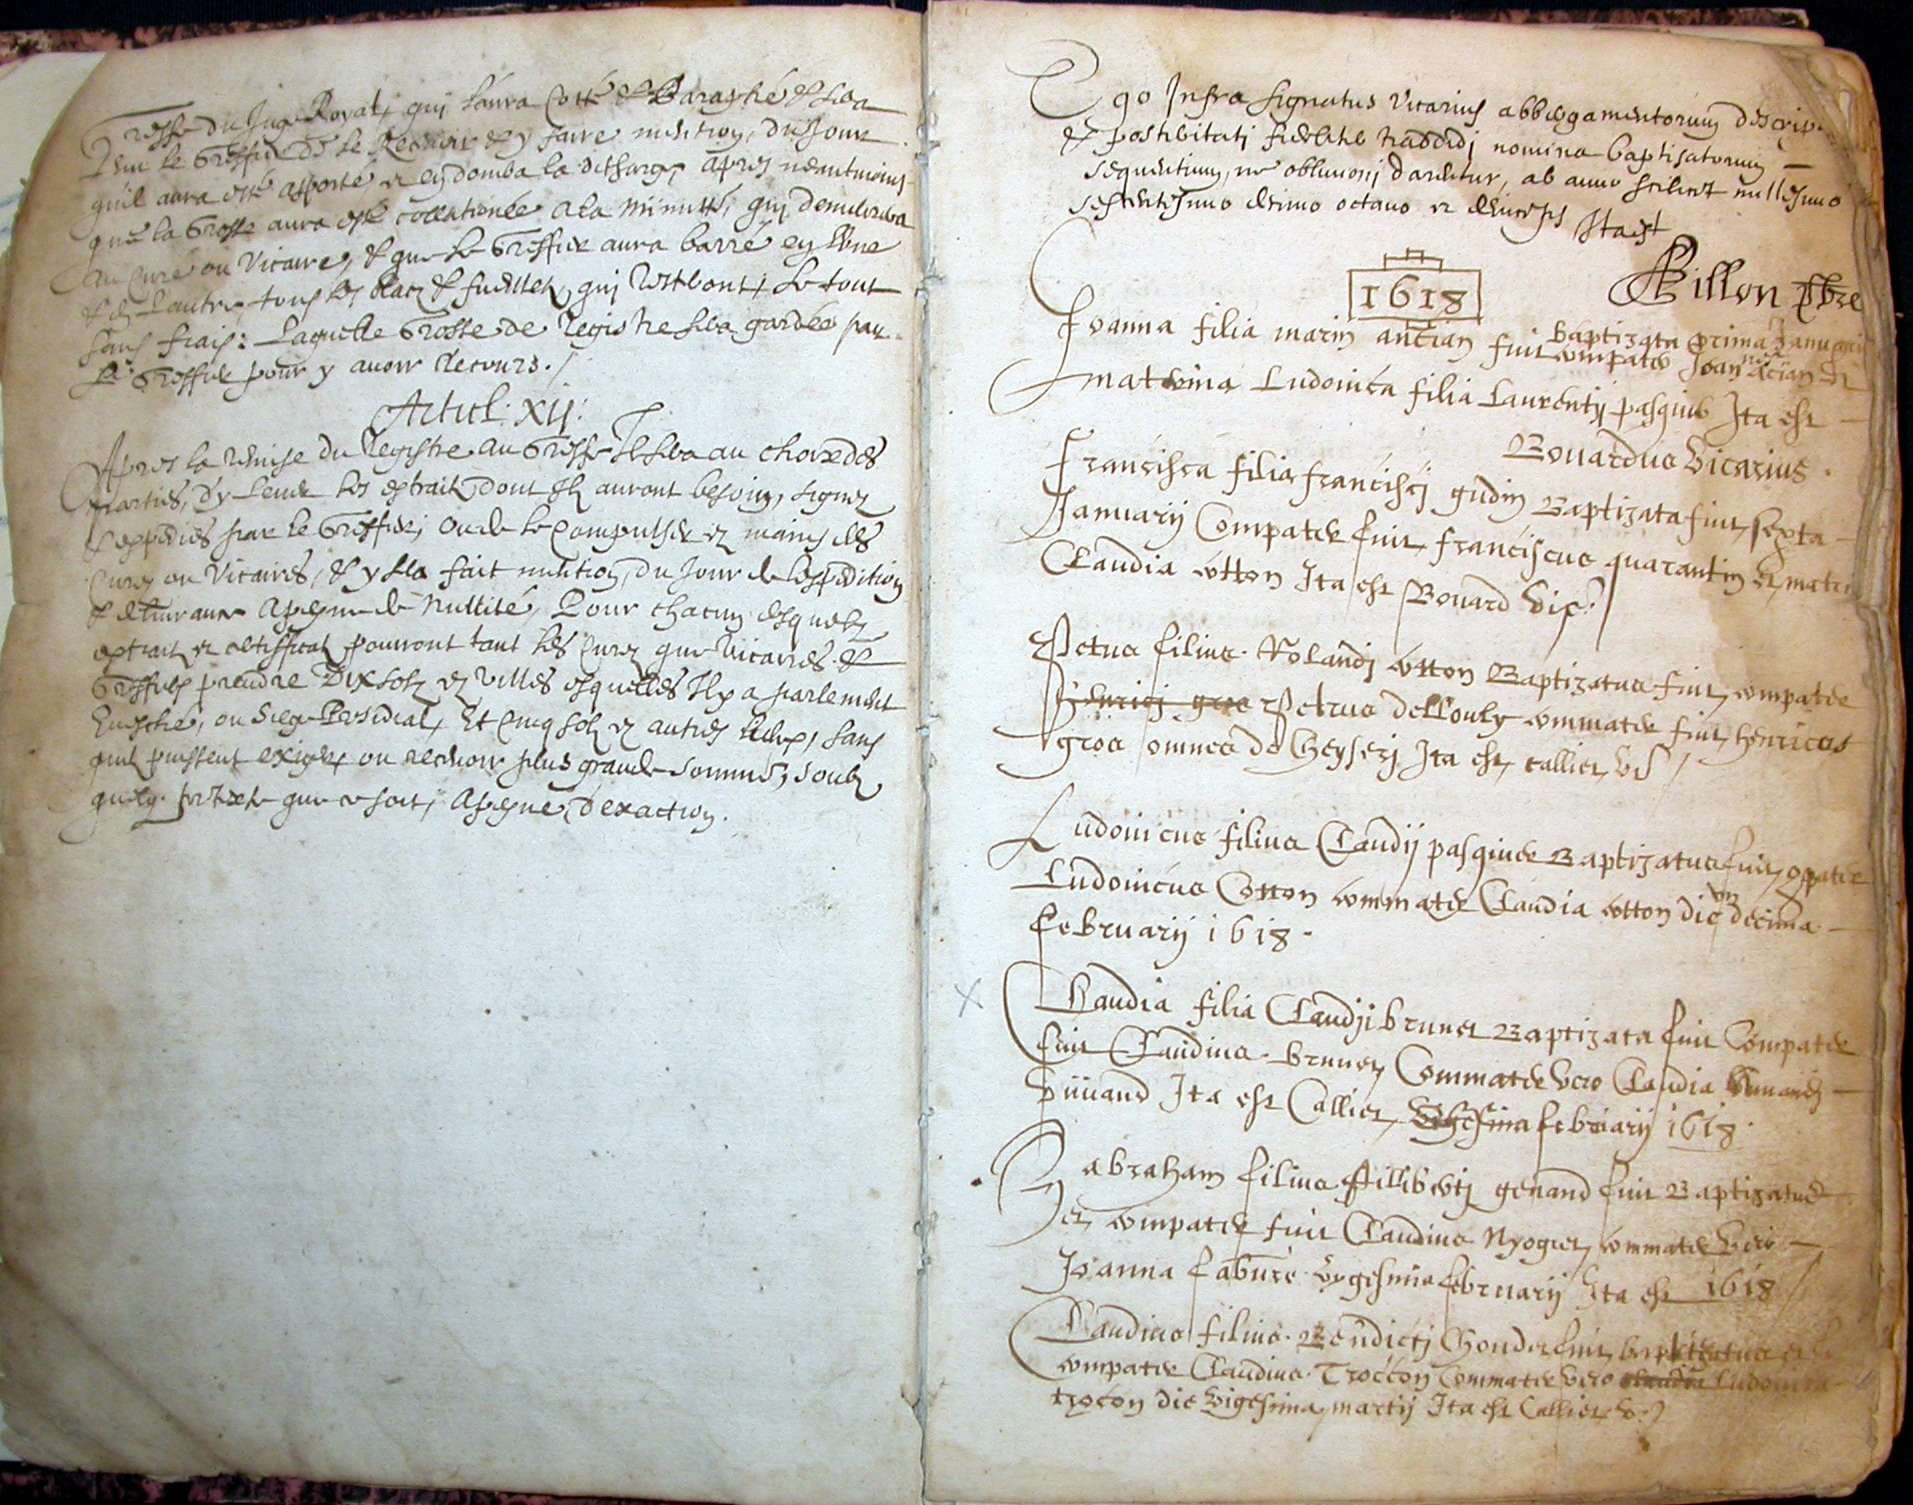 Greffe du Juge Royal, qui l'aura Cotté & Paraphé & sera
tenu le Greffier de le Recevoir & y faire mention, du Jour
qu'il aura esté apporté et en donra la descharge, apres neantmoins
que la Grosse aura esté collationée a la Minutte, qui demeurera
au Curé ou Vicaire, & que le Greffier aura barré en l'une
& en l'autre tous les blancz & fueilletz, qui resteront, le tout
sans frais: Laquelle Grosse de Registre sera gardée par
le Greffier pour y avoir Recours./
Articl: XII:
Apres la remise du Registre au Greffe Il sera au choix des
parties, d'y lever les extraitz dont Ilz auront besoing, signez
& expediés par le Greffier, ou de le compulser ez mains des
Curez ou Vicaires, & y sera fait mention, du Jour de l'expedition
& delivrance a peyne de Nullité, Pour chacun desquelz
extraitz et certifficatz pourront tant les Curez que Vicaires &
Greffiers prendre Dix solz ez villes esquelles Il y a parlement
Evesché, ou Siege Presidial, Et Cinq solz ez autres lieux, sans
qu'ilz puissent exiger ou recevoir plus grande somme, soubz
quelq. pretexte que ce soit, a peyne d'exaction.
Ego Infra signatus Vicarius abbergamentorum descrip
& posteritati fideliter tradidi nomina baptisatorum
sequentium, ne oblivioni darentur, ab anno scilicet millesimo
sexcentesimo decimo octavo et deinceps Ita est
Fillon pbre
1618
Joanna filia marin ancian fuit Baptizata prima Januarii
compater Joannes Ancian et
matrina Ludovica filia Laurentij pasquier Ita est
Bouardus Vicarius.
Francisca filia francisci gudin Baptizata fuit, sexta
Januarij Compater fuit, franciscus quarantin et matri
Claudia cotton Ita est Bouard Vic.
Petrus filius Rolandj cotton Baptizatus fuit, compater
Henrici gros Petrus dellouly commater fuit, henricus
gros omnes de Cheyserj Ita est, callier, vs
Ludovicus filius Claudij pasquier Baptizatus fuit, cpater
Ludovicus Cotton commater Claudia cotton die un decima
februarij 1618.
Claudia filia Claudji brunet Baptizata fuit Compater
fuit Claudius brunet, Commater vero Claudia
vivand Ita est Callier, Vigesima februarij 1618.
abraham filius filliberti genand fuit Baptizatus
et, compater fuit Claudius Nyogret, commater vero
Joanna fabure vigesima februarij Ita est 1618
Claudius filius Benedicti Gonder fuit, baptizatus et
compater Claudius Troccon Commater vero claudia Ludovica
trocon die vigesima martij Ita est Callier v.